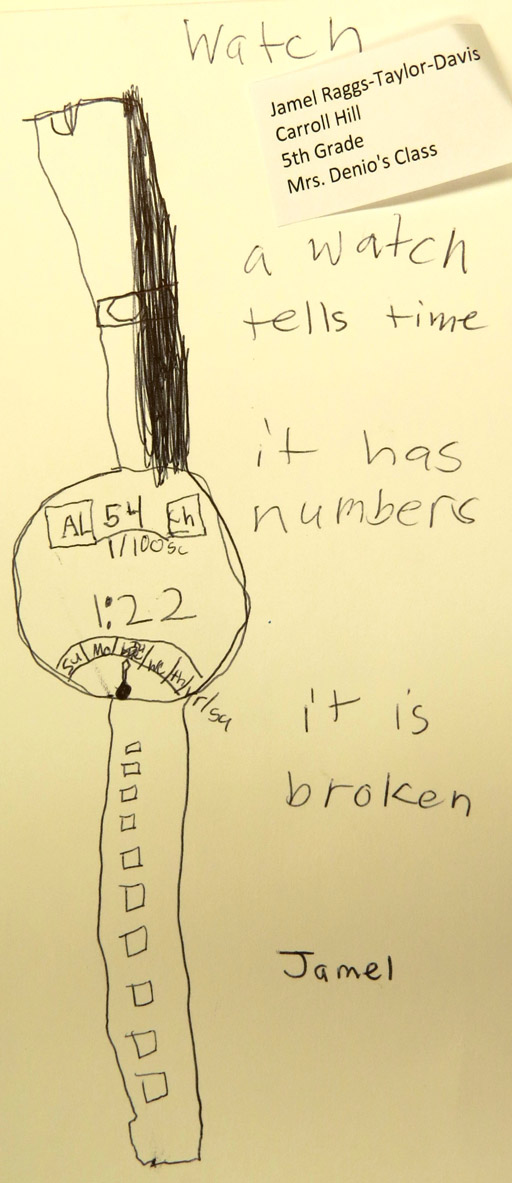 Watch
Jamel Raggs-Taylor-Davis
Carroll Hill
5th Grade
Mrs. Denio's Class
a watch
tells time
it has
numbers
AL 54 Ch
1/100sc
1:22
Su/Mo/ /We/th/Fr/sa
it is
broken
Jamel